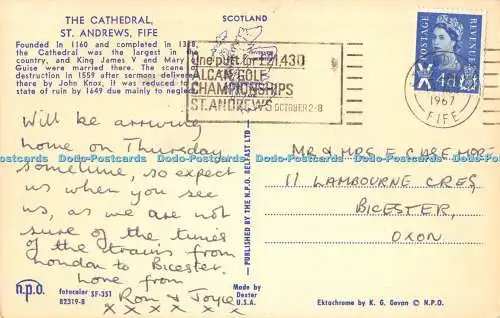 THE CATHEDRAL,
ST. ANDREWS, FIFE
Founded in 1160 and completed in 1318,
the Cathedral was the largest in the
country, and King James V and Mary
Guise were married here. The scene
destruction in 1559 after sermons delivered
there by John Knox, it was reduced to
state of ruin by 1649 due mainly to neglect.
SCOTLAND
One putt for £21,430
ALCAN GOLF
CHAMPIONSHIPS
ST. ANDREWS OCTOBER 2-8
POSTAGE
REVENUE
4d
1967
FIFE
Will be arriving
home on Thursday
sometime, so expect
us when you see
us, as we are not
sure of the times
of the trains from
London to Bicester.
Love from
Ron & Joyce
x x x x x x
MR & MRS E CUREMORE
11 LAMBOURNE CRES,
BICESTER,
OXON.
PUBLISHED BY THE N.P.O. BELFAST LTD
Dodo-Postcards Dodo-Postcards Dodo-Postcards Dodo-Postcards Dodo-Postcards
n.p.o.
fotocolor SF-351
82319-B
Made by
Dexter
U.S.A.
Ektachrome by K. G. Gevan © N.P.O.